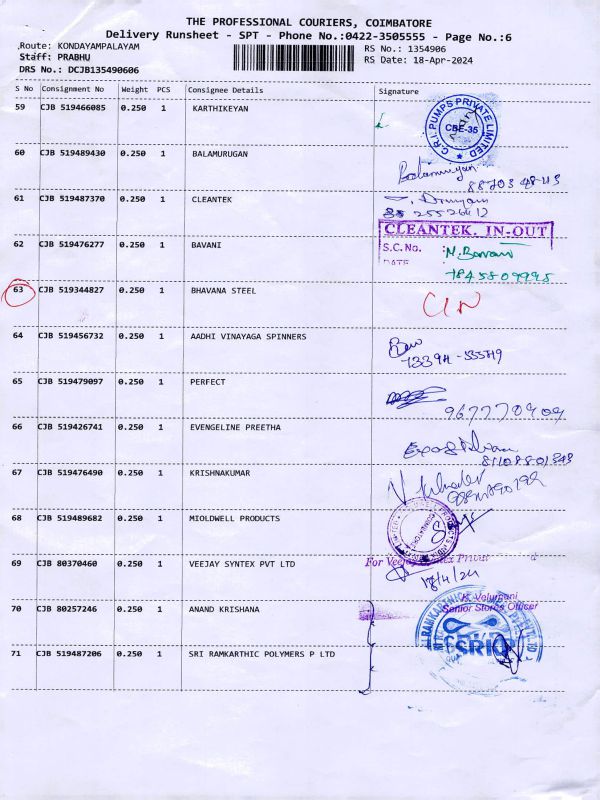 THE PROFESSIONAL COURIERS, COIMBATORE
Delivery Runsheet - SPT - Phone No.:0422-3505555 - Page No.:6
Route: KONDAYAMPALAYAM RS No.: 1354906
Staff: PRABHU RS Date: 18-Apr-2024
DRS No.: DCJB135490606
S No Consignment No Weight PCS Consignee Details Signature
59 CJB 519466085 0.250 1 KARTHIKEYAN
C.R.I. PUMPS PRIVATE LIMITED
CBE-35
60 CJB 519489430 0.250 1 BALAMURUGAN
Balamurugan
61 CJB 519487370 0.250 1 CLEANTEK
CLEANTEK. IN-OUT
S.C. No. :
DATE
62 CJB 519476277 0.250 1 BAVANI
N. Bavani
7845809995
63 CJB 519344827 0.250 1 BHAVANA STEEL
64 CJB 519456732 0.250 1 AADHI VINAYAGA SPINNERS
65 CJB 519479097 0.250 1 PERFECT
66 CJB 519426741 0.250 1 EVENGELINE PREETHA
67 CJB 519476490 0.250 1 KRISHNAKUMAR
68 CJB 519489682 0.250 1 MIOLDWELL PRODUCTS
69 CJB 80370460 0.250 1 VEEJAY SYNTEX PVT LTD
For Veejay Syntex Privat
18/4/24
K. Velumani
Senior Stores Officer
70 CJB 80257246 0.250 1 ANAND KRISHANA
71 CJB 519487206 0.250 1 SRI RAMKARTHIC POLYMERS P LTD